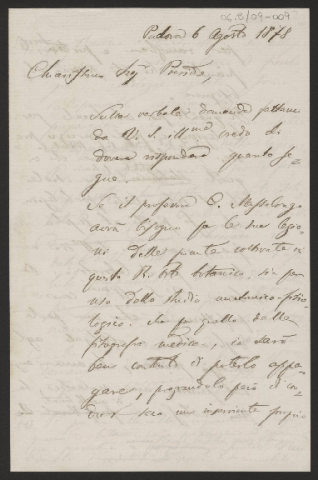 04.S/09-009
Padova 6 Agosto 1878
Sulla verbale domanda fattami
da V. S. Illma credo di
dover rispondere quanto se-
gue.
Se il professor C. Massalongo
avrà bisogno per le sue lezio-
ni delle piante coltivate in
questo R. Orto botanico, sia per
uso dello studio anatomico-fisio-
logico, che per quello della
fitografia medica, io sarò
ben contento di poterlo appa-
gare, pregandolo però d' in-
viar